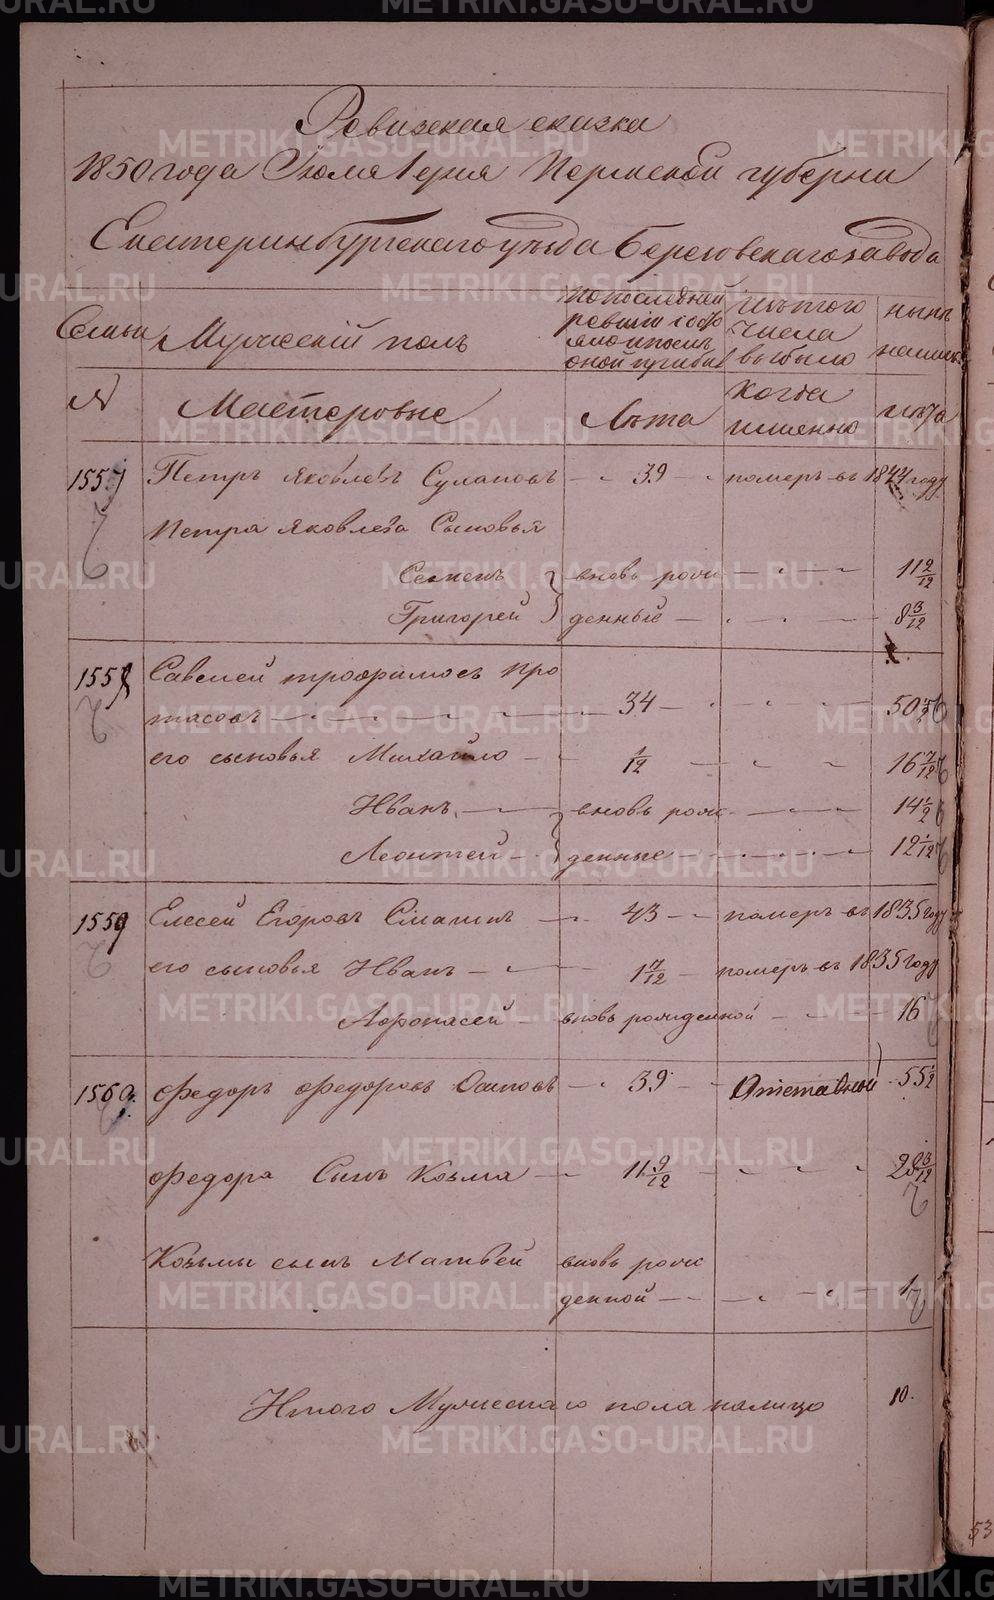 Ревизская сказка
1850 года Июля 1 дня Пермской губернии
Екатеринбургскаго уезда Березовскаго завода
Семьи
Мужескій полъ
по последней ревизіи состояло и после оной прибыло
изъ того числа выбыло
ныне на лицо
№
Мастеровые
Лета
когда именно
лета
1557 Петръ Яковлевъ 39 померъ въ 1844 году
Петра Яковлева Сыновья
Семенъ вновь рож 11 2/12
Григорей денные 8 3/12
1558 Савелей трофимовъ про
тасовъ 34 50
его сыновья Михайло 1/12 16 7/12
Иванъ вновь рож 14 1/2
Леонтей денные 12 1/12
1559 Елесей Егоровъ 43 померъ въ 1835 году
его сыновья Иванъ 1 7/12 померъ въ 1835 году
Афонасей вновь рожденной 16
1560 Федоръ Федоровъ Осиповъ 39 Отставной 55 1/2
Федора Сынъ Козма 11 9/12 28 3/12
Козьмы сынъ Матвей вновь рож
денной 1
Итого Мужеска пола налицо 10.
53
METRIKI.GASO-URAL.RU